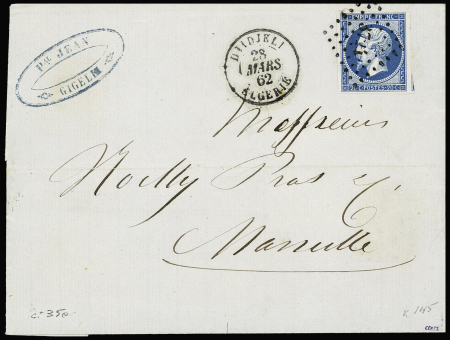 Pre JEAN
GIGELLI
DJIDJELI
28
MARS
62
ALGERIE
EMPIRE FRANC
20c POSTES 20c
Messieurs
Noilly Prat & C.
Marseille